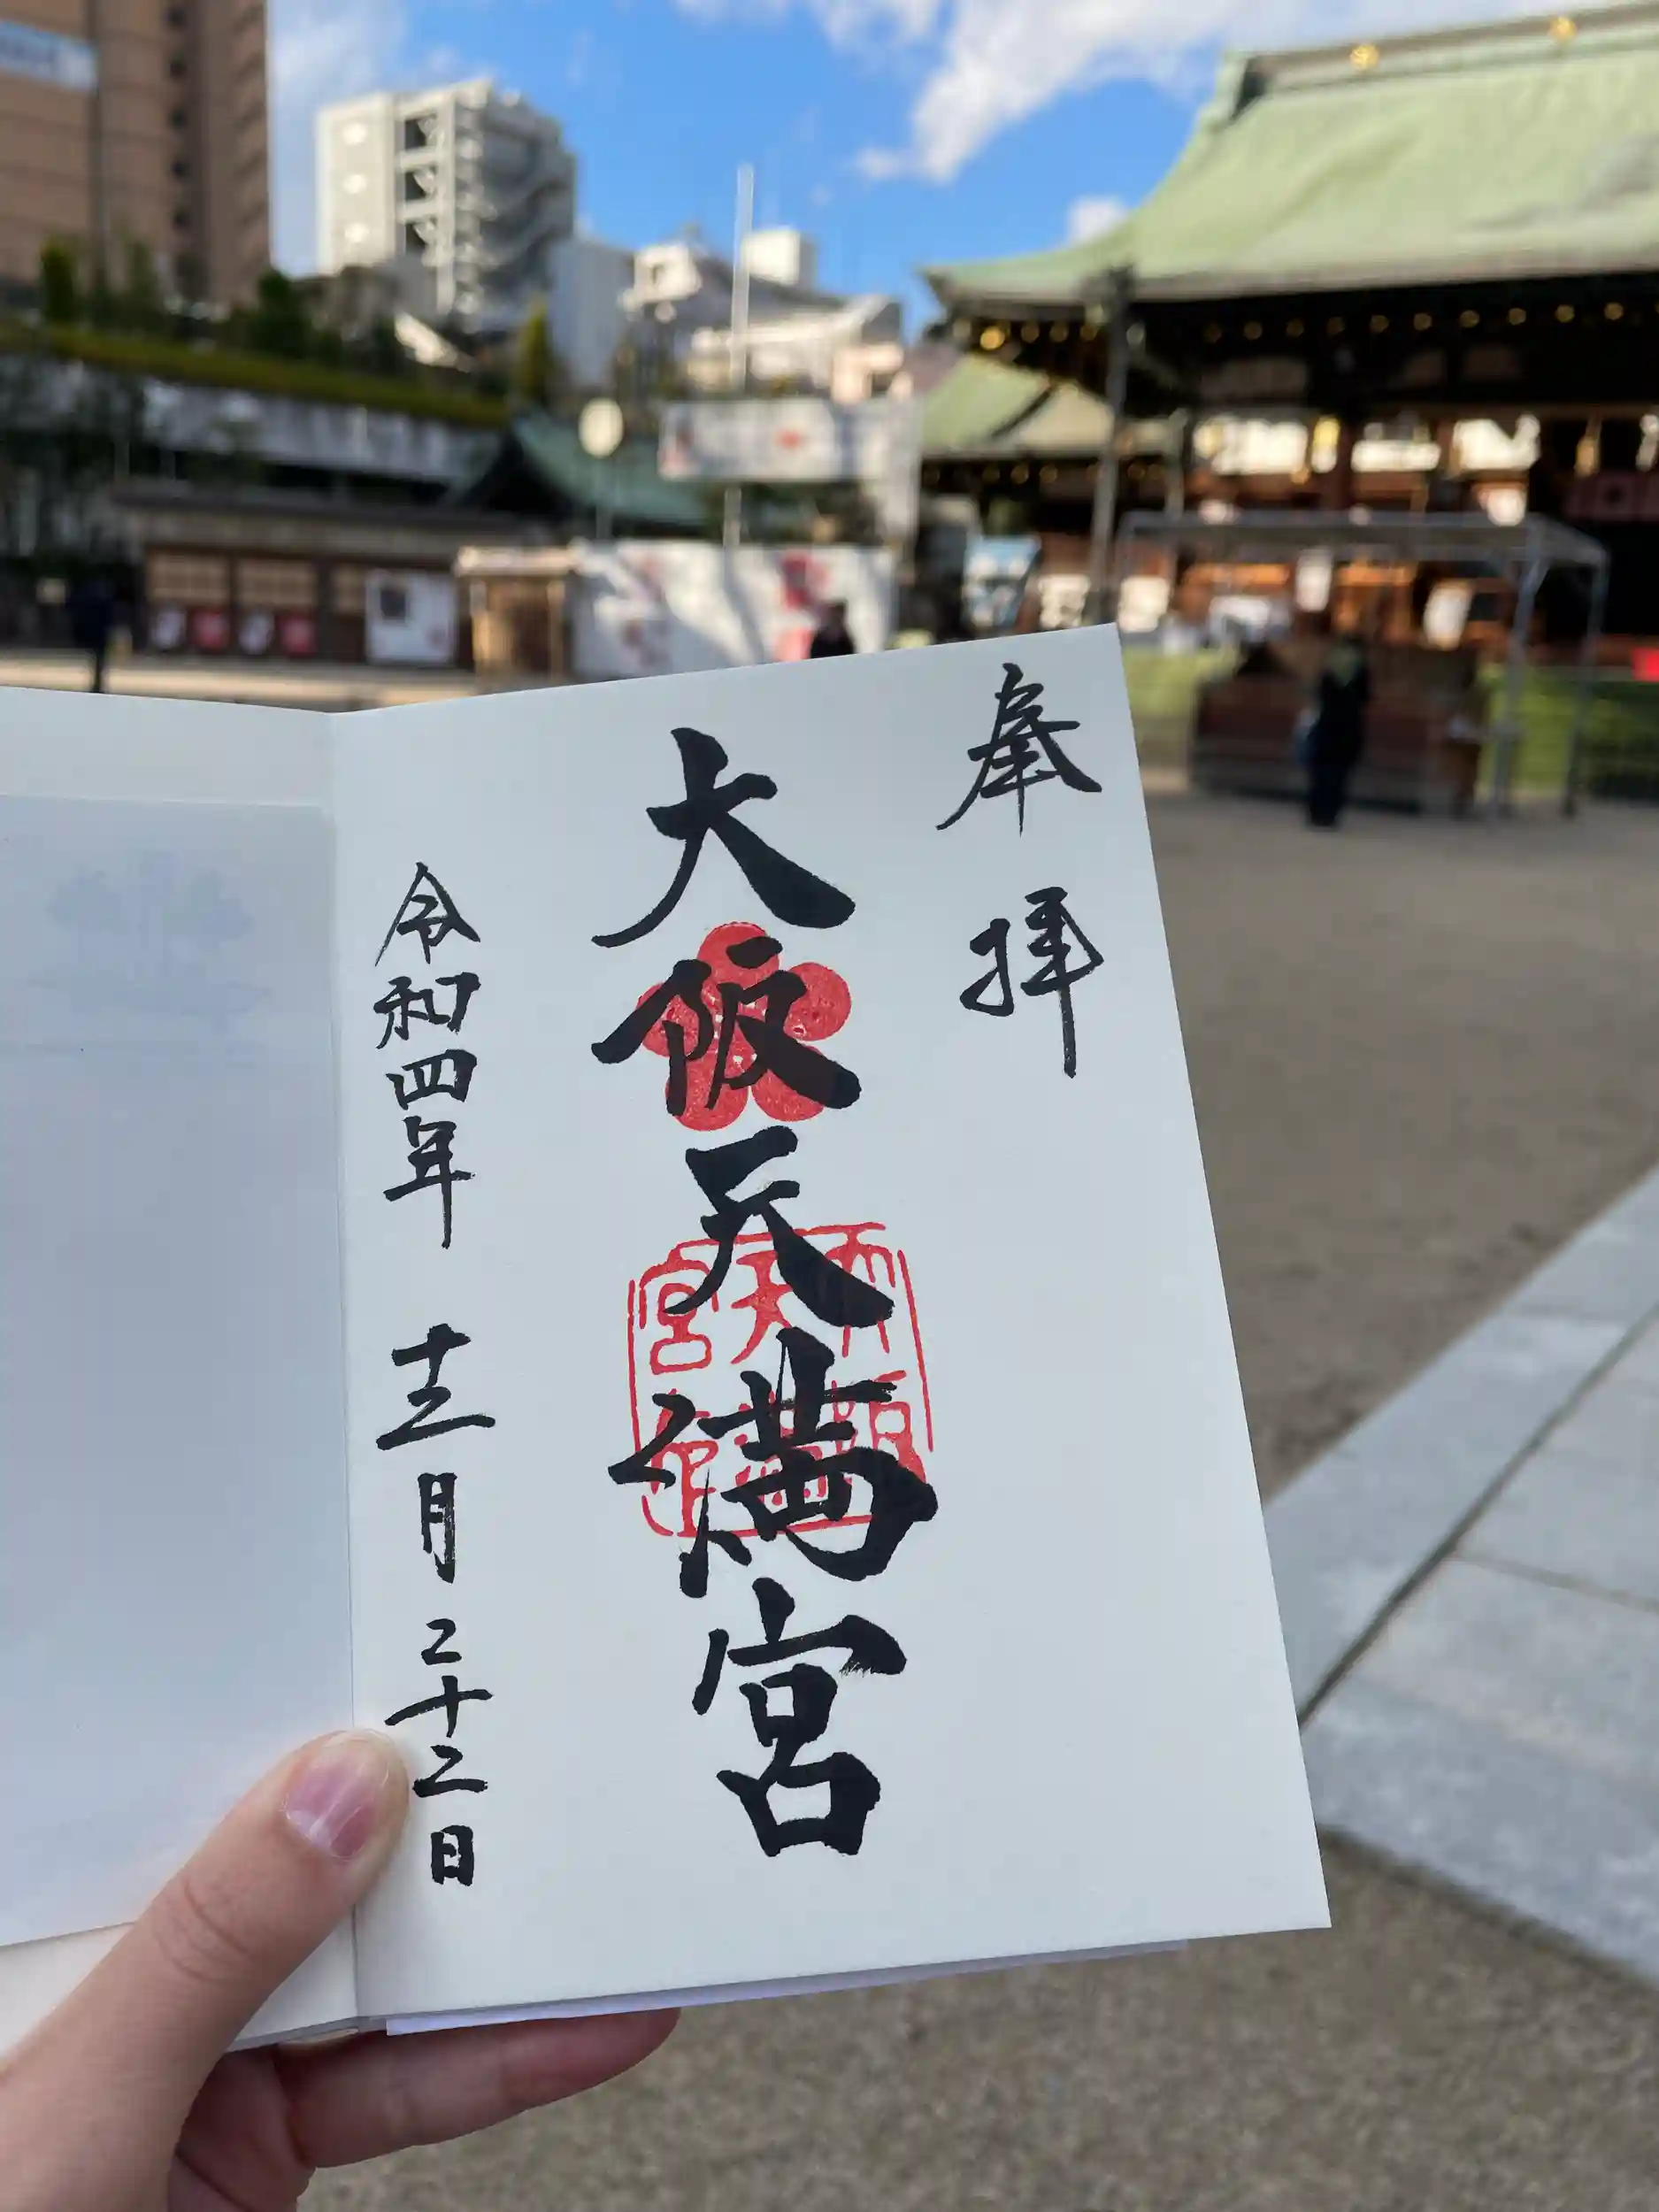 奉拝
大阪天満宮
令和四年十二月二十二日